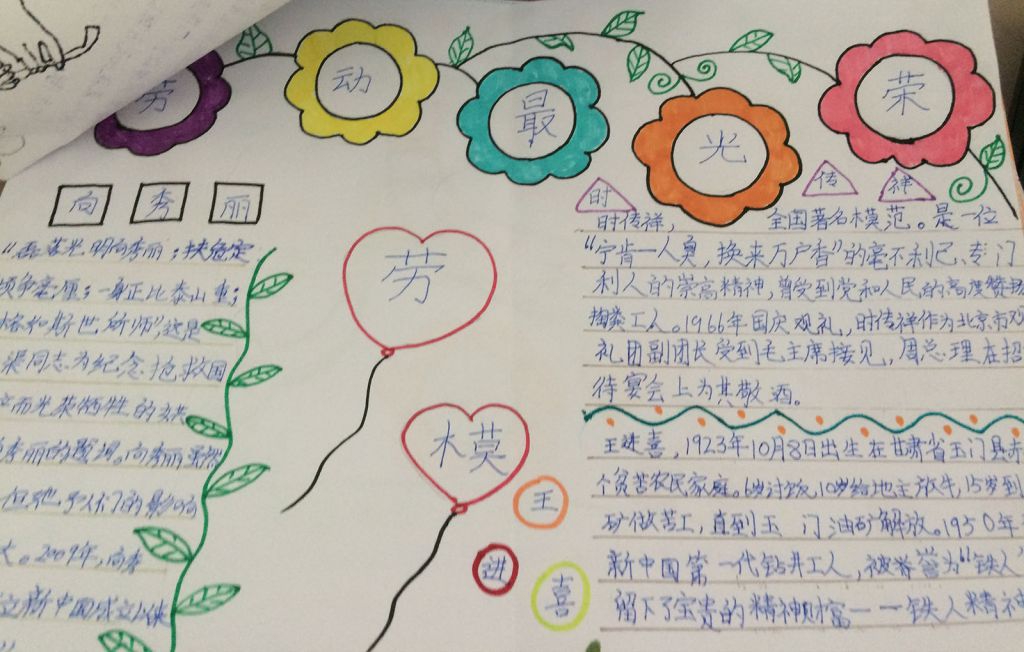 劳动最光荣
向秀丽
"磊落光明向秀丽；扶危定
顷争毫厘；一身正比泰山重；
榕和斯世所师"，这是
梁同志为纪念抢救国
产而光荣牺牲的
秀丽的题词。向秀丽虽然
但她予人们的影响
大。2009年，向秀
立新中国成立
劳
木莫
时传祥
时传祥，全国著名木模范。是一位
"宁肯一人臭，换来万户香"的毫不利己、专门
利人的崇高精神，曾受到党和人民的高度赞扬
掏粪工人。1966年国庆观礼，时传祥作为北京市观
礼团副团长受到毛主席接见，周总理在招
待宴会上为其敬酒。
王进喜
王进喜，1923年10月8日出生在甘肃省玉门县赤
个贫苦农民家庭。6岁讨饭，10岁给地主放牛，15岁到
矿做苦工，直到玉门油矿解放。1950年
新中国第一代钻井工人，被誉为"铁人"
留下了宝贵的精神财富——铁人精神